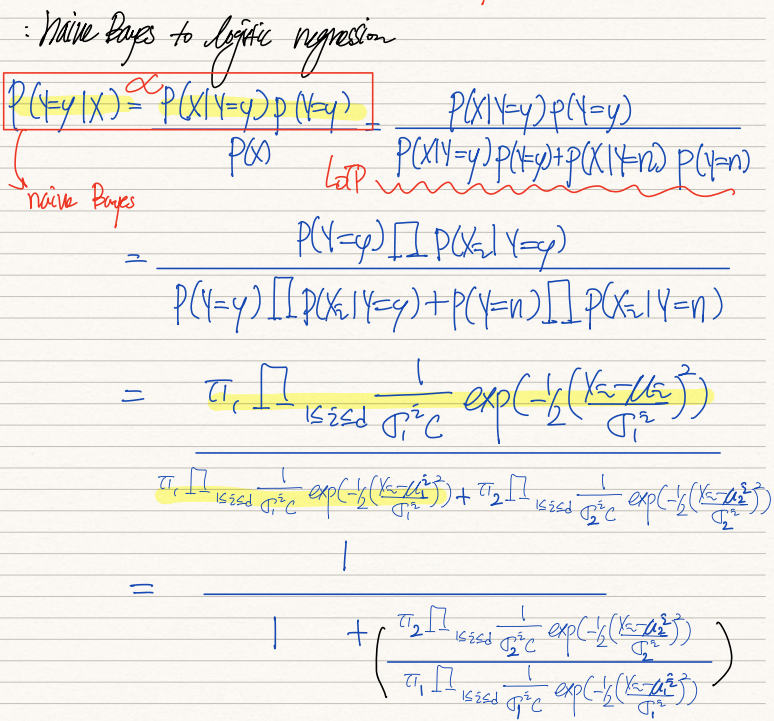 : Naive Bayes to logistic regression
P(Y=y|X) = P(X|Y=y) P(Y=y) / P(X) = P(X|Y=y) P(Y=y) / P(X|Y=y) P(Y=y) + P(X|Y=n) P(Y=n)
∝
LoTP
naive Bayes
= P(Y=y) ∏ P(Xi|Y=y) / P(Y=y) ∏ P(Xi|Y=y) + P(Y=n) ∏ P(Xi|Y=n)
= π₁ ∏ 1≤i≤d 1/(σ₁ⁱC) exp(-½((Xi-μi)/σ₁ⁱ)²) / π₁ ∏ 1≤i≤d 1/(σ₁ⁱC) exp(-½((Xi-μ₁ⁱ)/σ₁ⁱ)²) + π₂ ∏ 1≤i≤d 1/(σ₂ⁱC) exp(-½((Xi-μ₂ⁱ)/σ₂ⁱ)²)
= 1 / 1 + (π₂ ∏ 1≤i≤d 1/(σ₂ⁱC) exp(-½((Xi-μ₂ⁱ)/σ₂ⁱ)²) / π₁ ∏ 1≤i≤d 1/(σ₁ⁱC) exp(-½((Xi-μ₁ⁱ)/σ₁ⁱ)²))